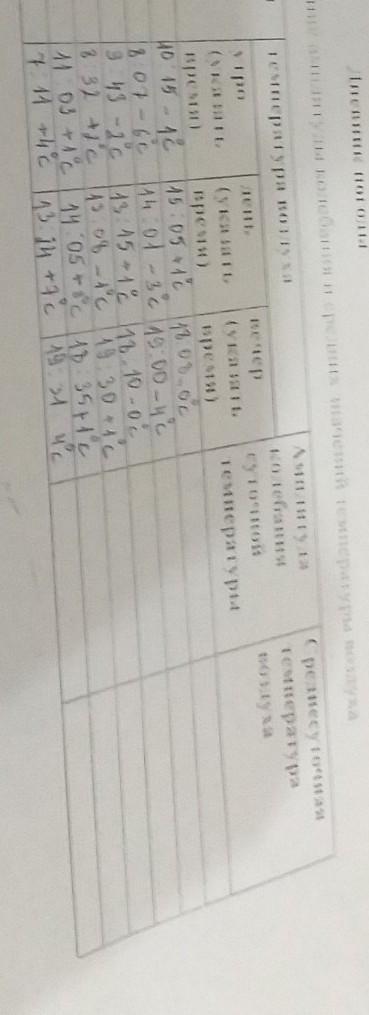 Дневник погоды
амплитуды колебания и средних значений температуры воздуха
температура воздуха
Амплитуда колебания суточной температуры
Среднесуточная температура воздуха
утро (указать время)
день (указать время)
вечер (указать время)
10:15 -1°C 15:05 +1°C 18 08 -0°C
8 07 -6°C 14:01 -3°C 19:00 -4°C
9 43 -2°C 13:15 +1°C 18 10 -0°C
8 32 +2°C 13 08 -1°C 19:30 +1°C
11 03 +1°C 14:05 +8°C 18:35 +1°C
7:11 +4°C 13:24 +7°C 19:31 4°C